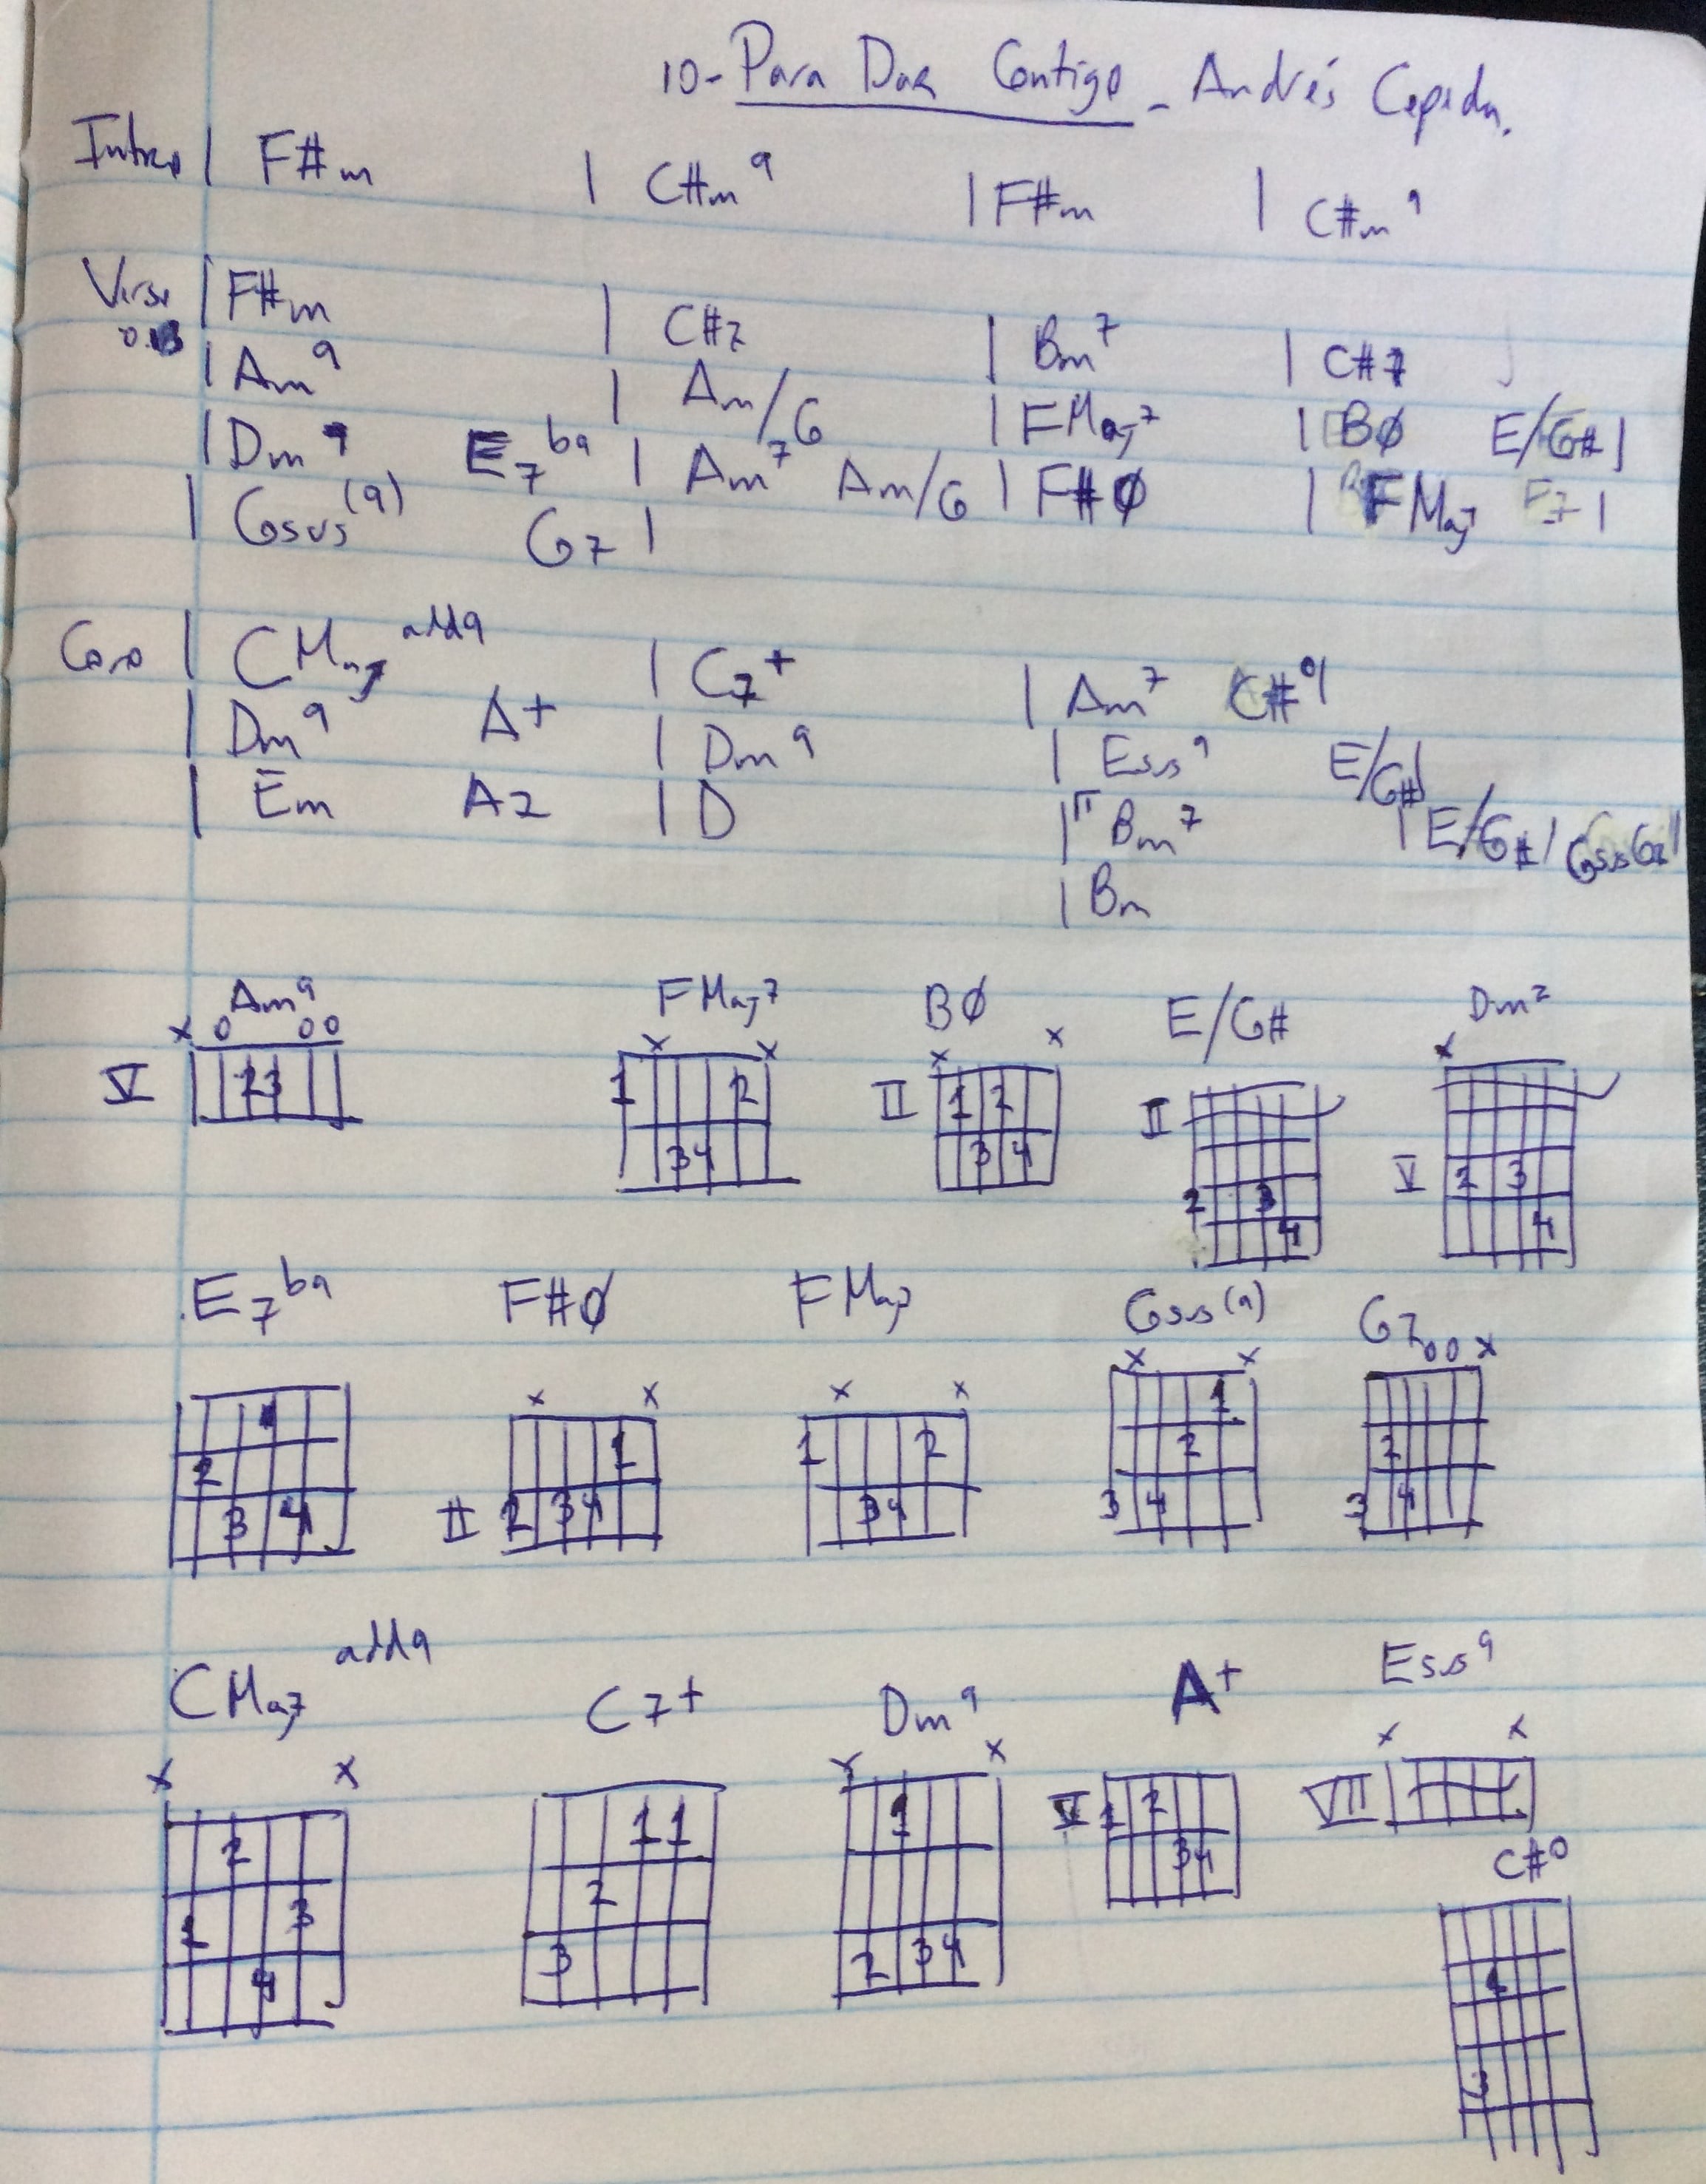 10-Para Dar Contigo - Andrés Cepeda.
Intro | F#m | C#m9 | F#m | C#m9
Verso | F#m | C#7 | Bm7 | C#7
| Am9 | Am/G | FMaj7 | BØ E/G# |
| Dm9 E7b9 | Am7 Am/G | F#Ø | FMaj
| Gsus(9) G7 |
Coro | CMaj add9 | C7+ | Am7 C#º |
| Dm9 A+ | Dm9 | Esus9 E/G# |
| Em A7 | D | Bm7 | E/G# | Gsus G7 |
| Bm
Am9 FMaj7 BØ E/G# Dm7
x o o o x x x x x
V 2 3 1 2 II 1 2 II
3 4 3 4 2 3 V 2 3
4 4
E7b9 F#Ø FMaj Gsus(9) G7
x x x x x x o o x
1 1 1 2 1
2 2 2
3 4 II 2 3 4 3 4 3 4 3 4
CMaj7 add9 C7+ Dm9 A+ Esus9
x x x x x x
2 1 1 1 V 1 2 VII
1 3 2 3 4 C#º
4 3 2 3 4
1
3